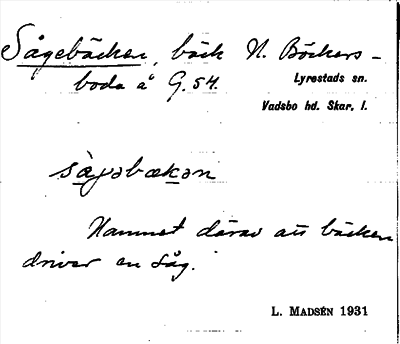 Sågebäcken, bäck N. Böckers-
boda å G. 54.
Lyrestads sn.
Vadsbo hd. Skar. l.
sågəbækən
Namnet därav att bäcken
driver en såg.
L. MADSÉN 1931